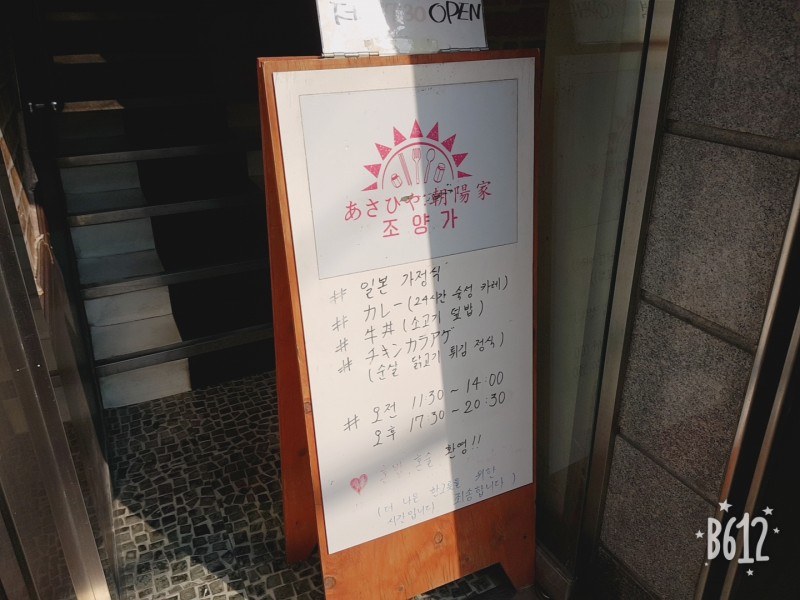 :30 OPEN
あさひや 朝陽家
조양가
# 일본 가정식
# カレー (24시간 숙성 카레)
# 牛丼 (소고기 덮밥)
# チキンカラアゲ
(순살 닭고기 튀김 정식)
# 오전 11:30 ~ 14:00
오후 17:30 ~ 20:30
♥ 혼밥, 혼술 환영!!
(더 나은 한끼를 위한
시간입니다. 죄송합니다)
B612